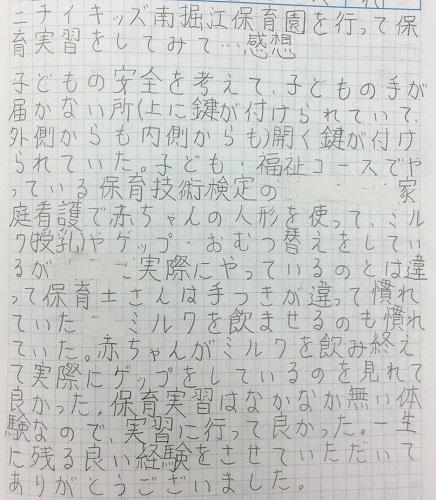 ニチイキッズ南堀江保育園を行って保
育実習をしてみて…感想
子どもの安全を考えて、子どもの手が
届かない所(上に鍵が付けられていて、
外側からも内側からも)開く鍵が付け
られていた。子ども・福祉コースでや
っている保育技術検定の 家
庭看護で赤ちゃんの人形を使って、ミル
ク(授乳)やゲップ・おむつ替えをしてい
るが ご実際にやっているのとは違
って保育士さんは手つきが違って慣れ
ていた ミルクを飲ませるのも慣れ
ていた。赤ちゃんがミルクを飲み終え
て実際にゲップをしているのを見れて
良かった。保育実習はなかなか無い体
験なので、実習に行って良かった。一生
に残る良い経験をさせていただいて
ありがとうございました。